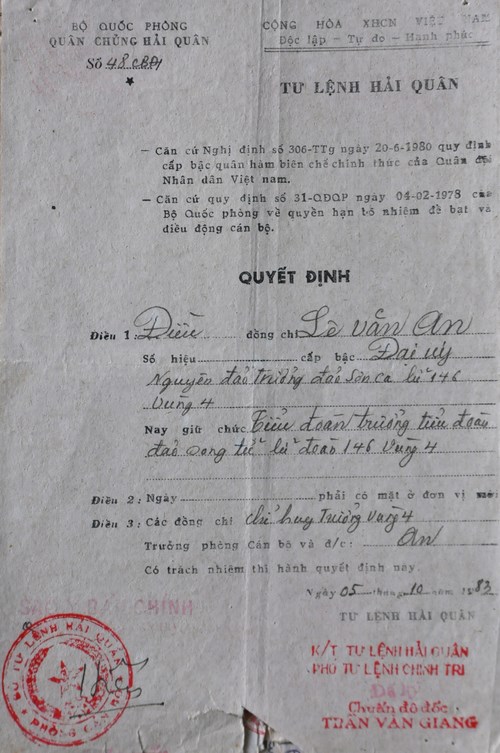 BỘ QUỐC PHÒNG
QUÂN CHỦNG HẢI QUÂN
Số 48
CỘNG HÒA XHCN VIỆT NAM
Độc lập - Tự do - Hạnh phúc
TƯ LỆNH HẢI QUÂN
- Căn cứ Nghị định số 306-TTg ngày 20-6-1980 quy định
cấp bậc quân hàm biên chế chính thức của Quân đội
Nhân dân Việt nam.
- Căn cứ quy định số 31-QĐQP ngày 04-02-1978 của
Bộ Quốc phòng về quyền hạn bổ nhiệm đề bạt và
điều động cán bộ.
QUYẾT ĐỊNH
Điều 1: Điều đồng chí Lê Văn An
Số hiệu cấp bậc Đại uý
Nguyên đảo trưởng đảo Sơn ca lữ 146
Vùng 4
Nay giữ chức Tiểu đoàn trưởng tiểu đoàn
đảo lữ đoàn 146 Vùng 4
Điều 2: Ngày phải có mặt ở đơn vị mới
Điều 3: Các đồng chí chỉ huy trưởng Vùng 4
Trưởng phòng Cán bộ và đ/c: An
Có trách nhiệm thi hành quyết định này.
Ngày 05 tháng 10 năm 1983
SAO Y BẢN CHÍNH
TƯ LỆNH HẢI QUÂN
K/T TƯ LỆNH HẢI QUÂN
PHÓ TƯ LỆNH CHÍNH TRỊ
Đã ký
Chuẩn đô đốc
TRẦN VĂN GIANG
BỘ TƯ LỆNH HẢI QUÂN
PHÒNG CÁN BỘ